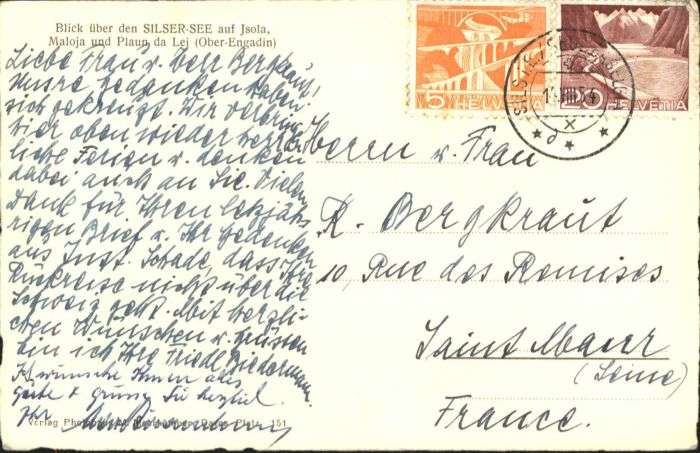 Blick über den SILSER-SEE auf Jsola,
Maloja und Plaun da Lej (Ober-Engadin)
Liebe Frau u. Herr Bergkraut,
Unsre Gedanken haben
sich gekreuzt. Wir verbrin
hier oben wieder herr
liche Ferien u. denken
dabei auch an Sie. Vielen
Dank für Ihren letzjäh
rigen Brief u. Ihr Gedenken
aus Inst. Schade, dass Ihre
Rückreise nicht über die
Schweiz geht. Mit herzli
chen Wünschen u. Grüssen
bin ich Ihre Friedl Biedermann
Ich wünsche Ihnen alles
gute & grüsse Sie herzlich.
Ihr
Verlag Platz 151
5 HELVETIA
HELVETIA
SILS
Herrn u. Frau
R. Bergkraut
10, Rue des Remises
Saint Maur
(Seine)
France.